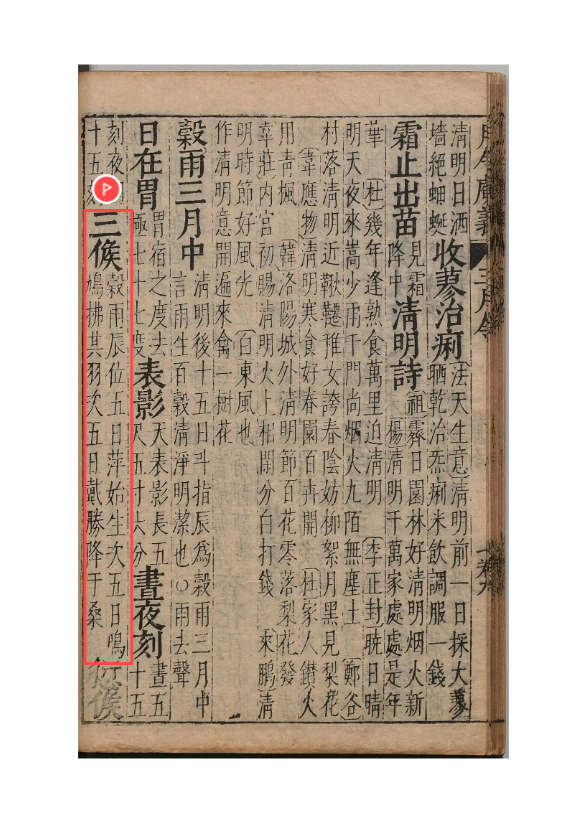 月令廣義 三月令
清明日洒
墻絶蚰蜒
收蓼治痢
法天生意清明前一日採大蓼
晒乾治炁痢米飲調服一錢
霜止出苗
見霜
降中
清明詩
祖霽日園林好清明烟火新
楊清明千萬家處處是年
華杜幾年逢熟食萬里迫清明李正封曉日晴
明天夜來嵩少雨千門尚烟火九陌無塵土鄭谷
村落清明近鞦韆推女誇春陰妨柳絮月黑見梨花
韋應物清明寒食好春園百卉開杜家人鑚火
用青楓韓洛陽城外清明節百花寒落梨花發
韋莊内宮初賜清明火上相閒分白打錢來鵬清
明時節好風光白東風也
作清明意開遍來禽一樹花
穀雨三月中
清明後十五日斗指辰爲穀雨三月中
言雨生百穀清淨明潔也○雨去聲
日在胃
胃宿之度去
極七十七度
表影
天表影長五
尺五寸六分
晝夜刻
晝五
十五
刻夜
十五刻
三候
穀雨辰位五日萍始生次五日鳴
鳩拂其羽次五日戴勝降于桑
愆候